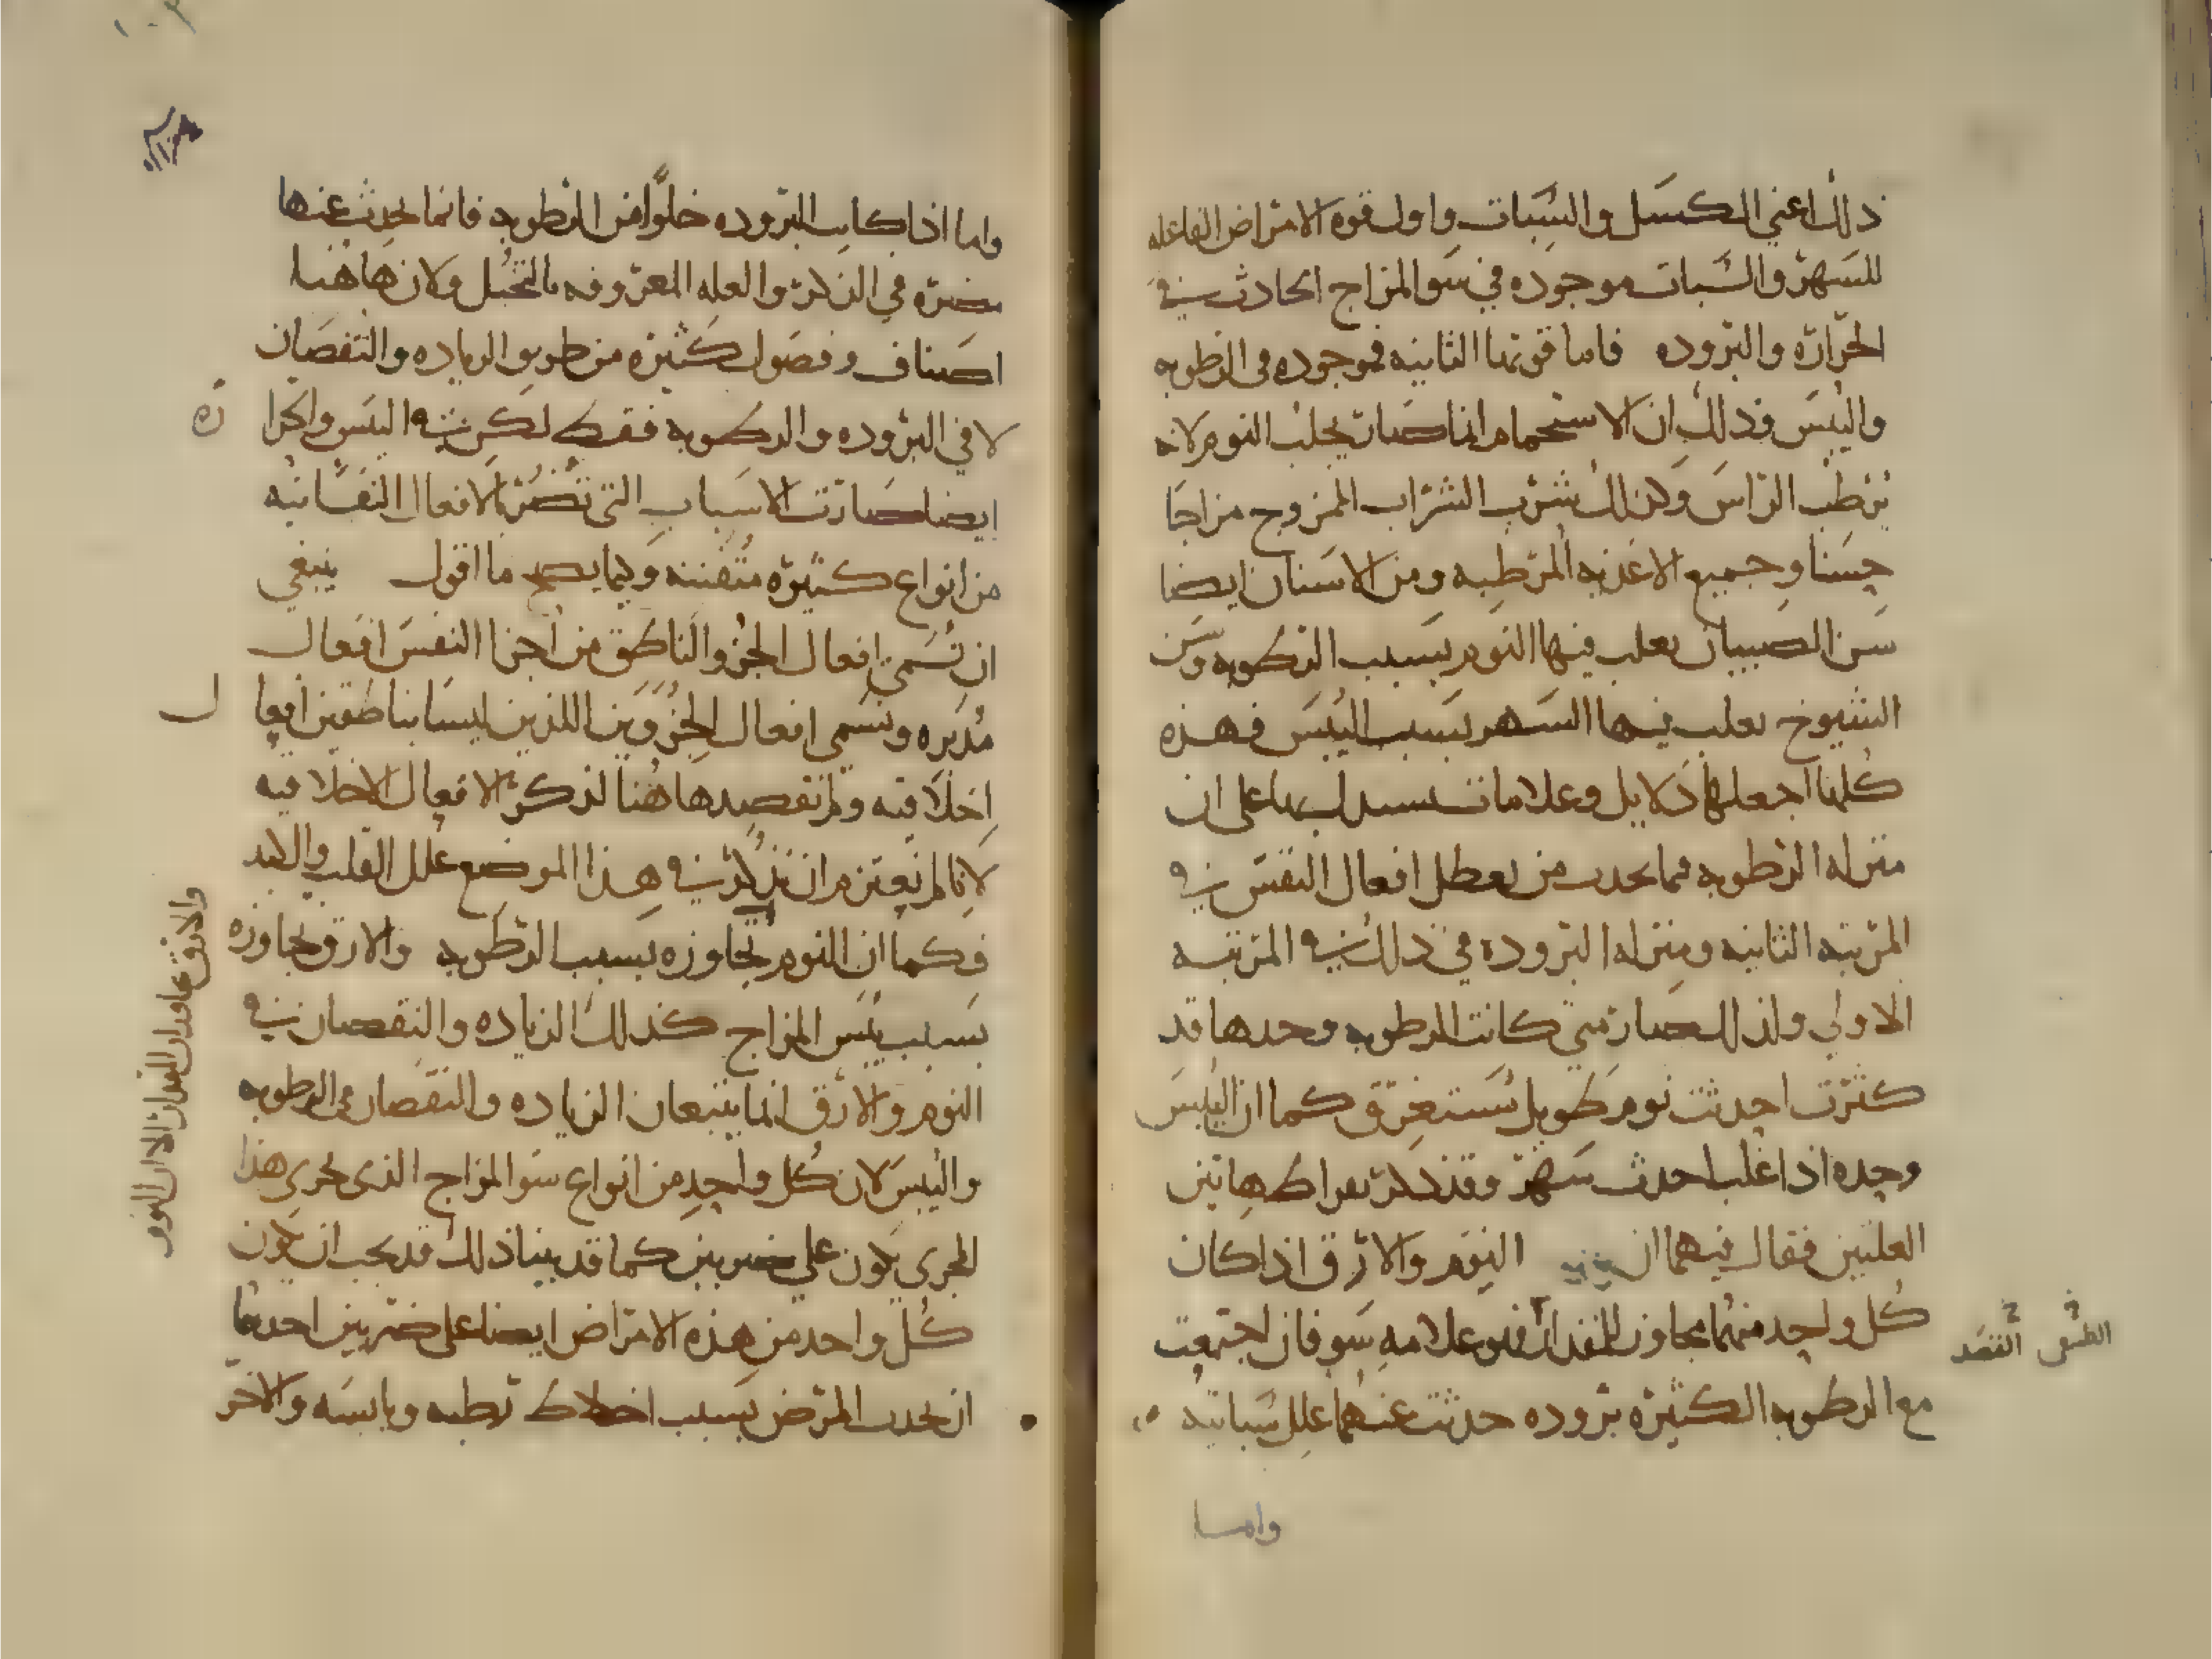 ذلك اعني الكسل والسبات واول قوه الامراض الفاعله
للسهر والسبات موجوده في سو المزاج الحادث في
الحراره والبروده فاما قوتها الثانيه فموجوده في الرطوبه
واليبس وذلك ان الاستحمام انما صار يجلب النوم لانه
يرطب الراس وكذلك شرب الشراب الممزوج مزاجا
حسنا وجميع الاغذيه المرطبه ومن الاسنان ايضا
سن الصبيان يغلب فيها النوم بسبب الرطوبه وسن
الشيوخ يغلب فيها السهر بسبب اليبس فهذه
كلها اجعلها دلايل وعلامات تستدل بها على ان
منزله الرطوبه فيما يحدث من تعطل افعال النفس في
المرتبه الثانيه ومنزله البروده في ذلك في المرتبه
الاولى ولذلك صار متى كانت الرطوبه وحدها قد
كثرت احدثت نوم طويل مستغرق كما ان اليبس
وحده اذا غلب احدث سهر وقد ذكر بقراط هاتين
العلتين فقال فيهما ان النوم والارق اذا كان
كل واحد منهما مجاوز للمقدار فهو علامه سو فان اجتمعت
مع الرطوبه الكثيره بروده حدثت عنهما علل سباتيه
واما
واما اذا كانت البروده خلوا من الرطوبه فانما يحدث عنها
مضره في الذكر والعله المعروفه بالتخبل ولان هاهنا
اصناف وفصول كثيره من طريق الزياده والنقصان
لا في البروده والرطوبه فقط لكن في اليبس والحرا ره
ايضا صارت الاسباب التي تضر بالافعال النفسانيه
من انواع كثيره متفننه وكيما يصح ما اقول ينبغي
ان تسمى افعال الجزو الناطق من اجزا النفس افعال
مدبره وتسمى افعال الجزوين اللذين ليسا بناطقين افعا ل
اخلاقيه ولم نقصد هاهنا لذكر الافعال الاخلاقيه
لانا لم نعتزم ان نذكر في هذا الموضع علل القلب والكبد
فكما ان النوم تجاوزه بسبب الرطوبه والارق تجاوزه
بسبب يبس المزاج كذلك الزياده والنقصان في
النوم والارق انما يتبعان الزياده والنقصان في الرطوبه
واليبس لان كل واحد من انواع سو المزاج الذي يجري هذا
المجرى يكون على ضربين كما قد بينا ذلك قد يجب ان يكون
كل واحد من هذه الامراض ايضا على ضربين احدهما
ان يحدث المرض بسبب اخلاط رطبه ويابسه والاخر